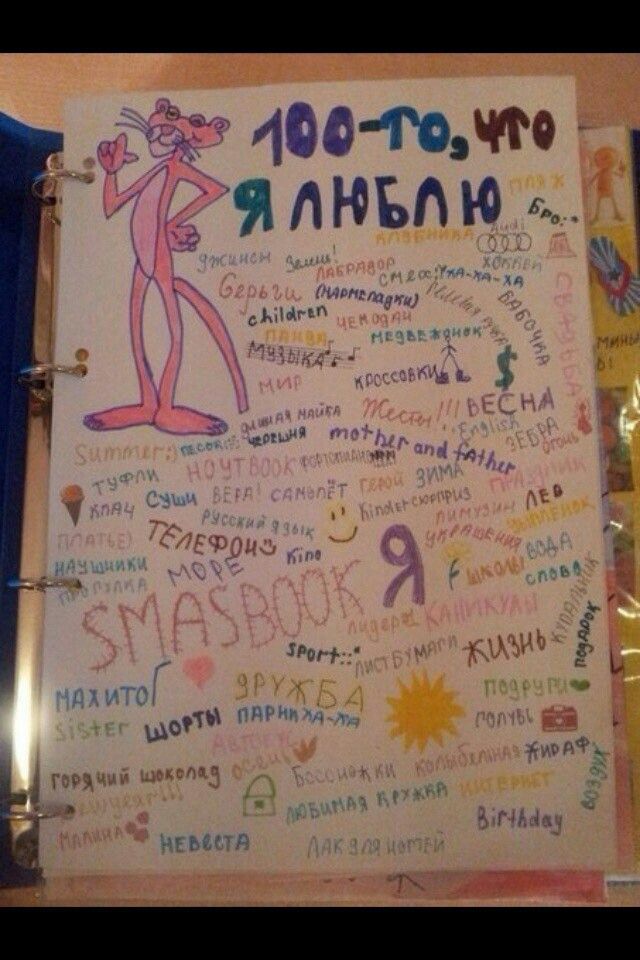 100-то, что
Я ЛЮБЛЮ
ПЛЯЖ
Бро:*
КЛУБНИКА
Audi
джинсы
Зелень!
ХОККЕЙ
ЛАБРАДОР
смех:)ха-ха-ха
Серьги
(мармеладки)
БАБОЧКА
СВАДЬБА
children
ЧЕМОДАН
ПАНДА
МЕДВЕЖОНОК
МУЗЫКА
$
МИР
КРОССОВКИ
Жесты!!!
ВЕСНА
длиная майка
English
ЗЕБРА
огонь
Summer:)
песок
черешня
mother and father
НОУТBOOK
ФОРТОПИАНО
ПРАЗДНИК
ТУФЛИ
суши
ВЕРА!
САМОЛЁТ
ГЕРОЙ
ЗИМА
ЛЕВ
Kinder сюрприз
ЛИМУЗИН
ПЛАЧ
РУССКИЙ ЯЗЫК
УКРАШЕНИЯ
ЦЫПЛЁНОК
ПЛАТЬЕ)
ТЕЛЕФОН
Я
НАУШНИКИ
Kino
ВОДА
ПРОГУЛКА
МОРЕ
ШКОЛЫ
слова
SMASBOOK
КУПАЛЬНИК
лидер
КАНИКУЛЫ
ПОДАРОК
sport::*
ЛИСТ БУМАГИ
ЖИЗНЬ
МАХИТО
ДРУЖБА
ПОДРУГИ
sister
ШОРТЫ
ПАРНИ ХА-ХА
ГОЛУБЬ
осень
горячий шоколад
Босоножки
колыбельная
ЖИРАФ
ВОЗДУХ
New year!!!
ЛЮБИМАЯ КРУЖКА
ИНТЕРНЕТ
МАЛИНА
НЕВЕСТА
ЛАК ДЛЯ НОГТЕЙ
Birthday